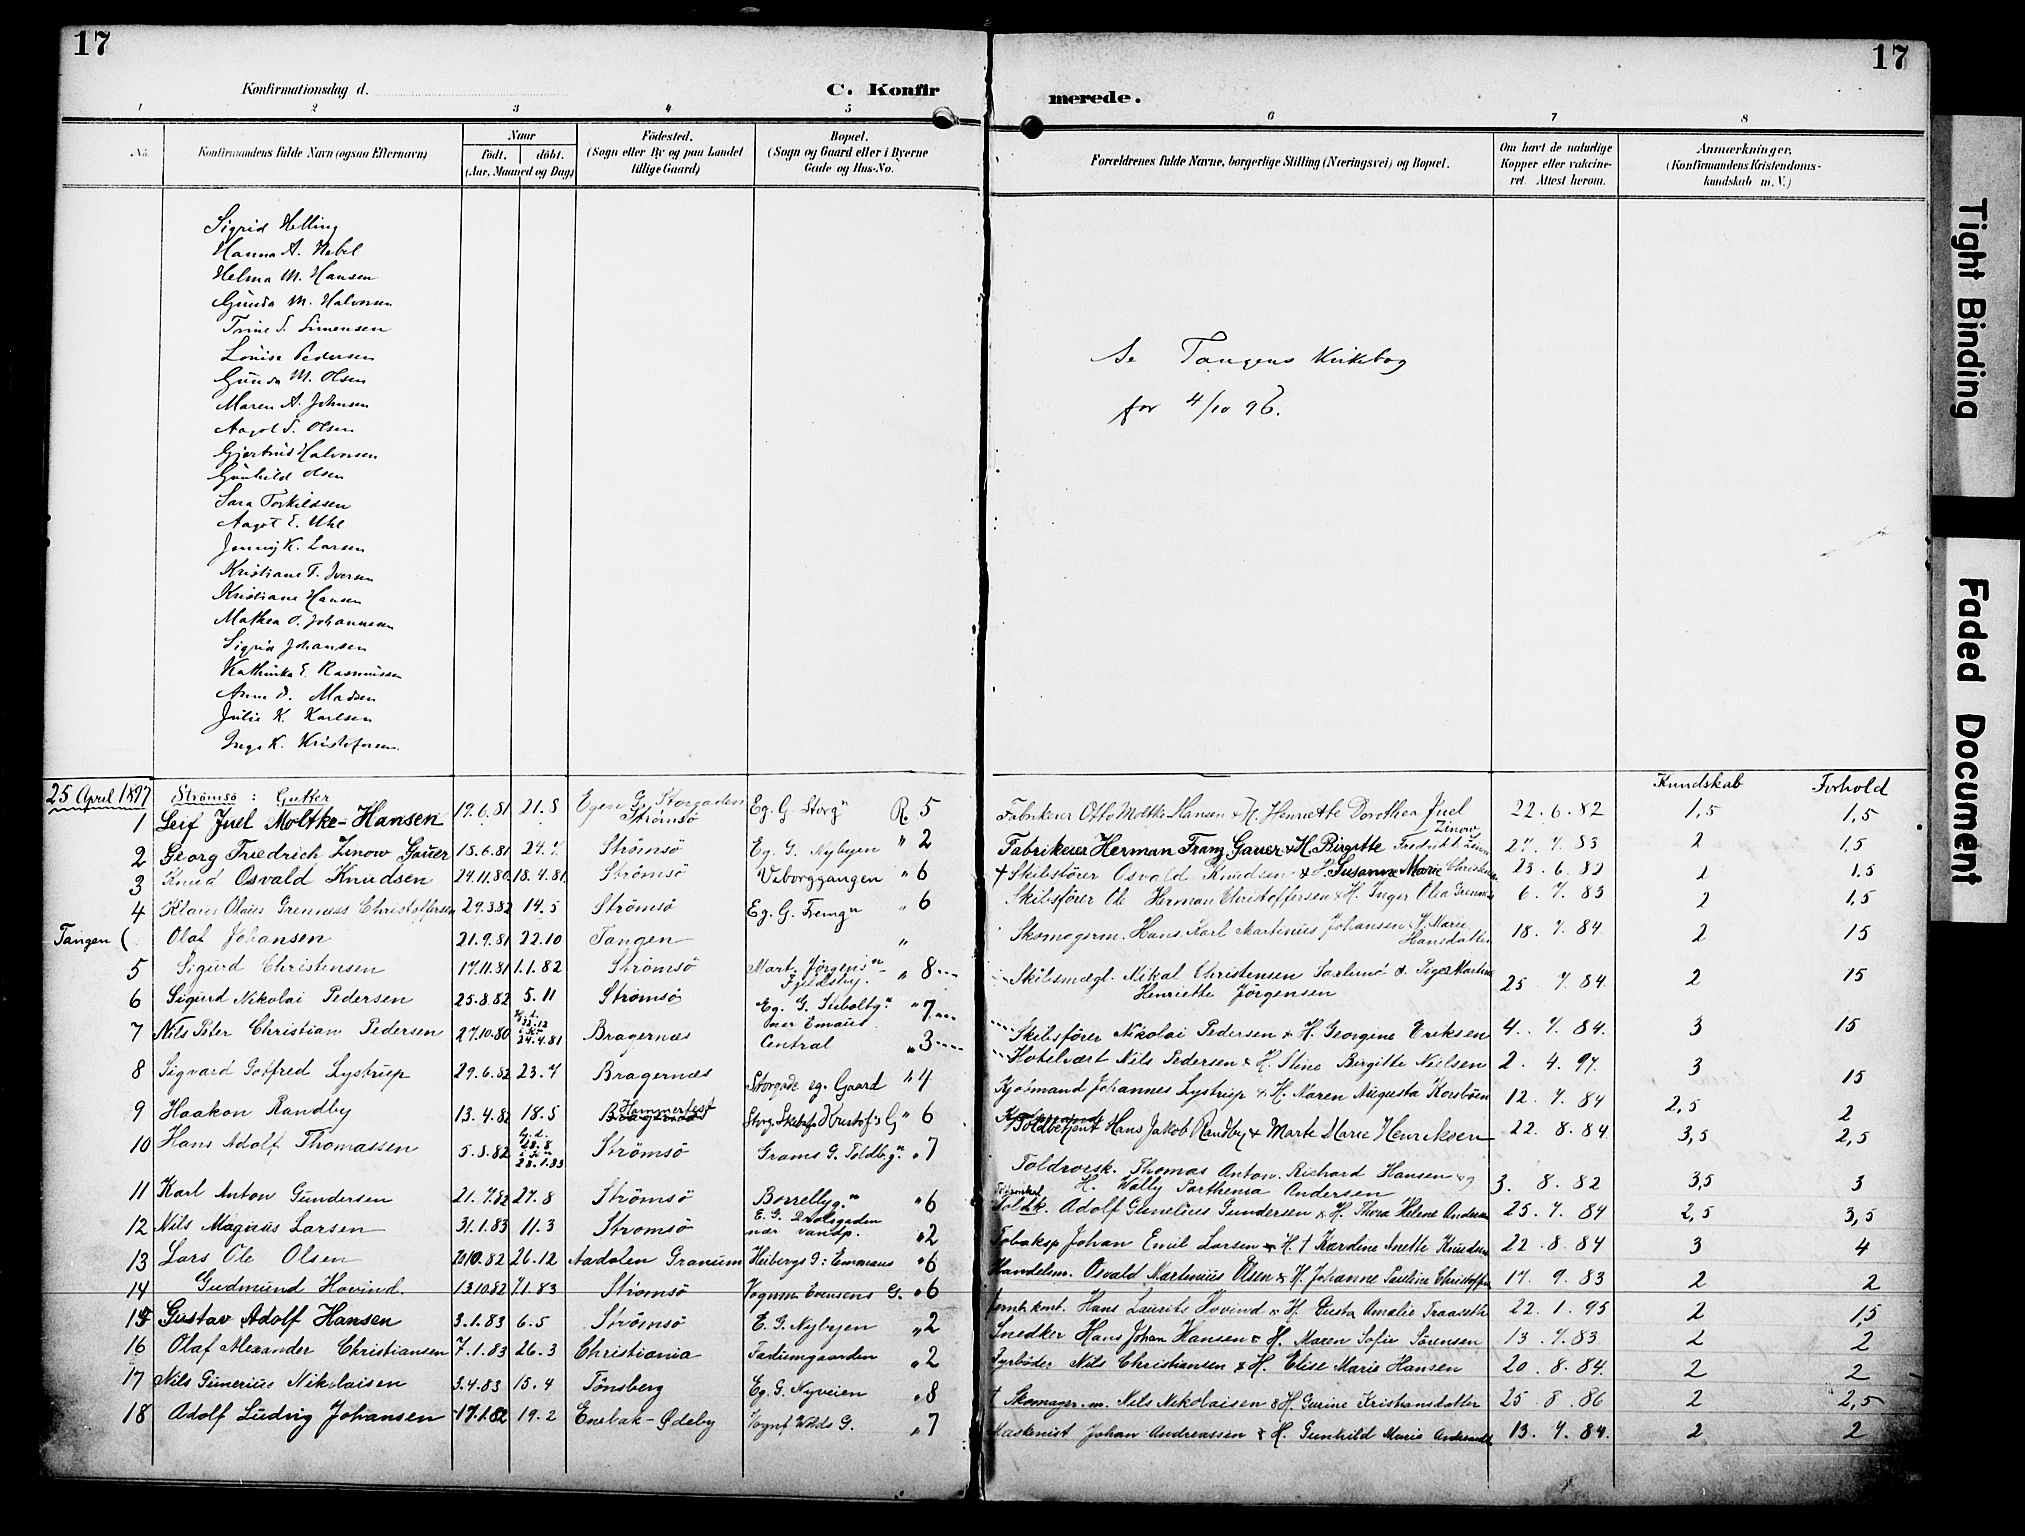 17
17
Konfirmationsdag d.
C. Konfir
merede.
1 2 3 4 5 6 7 8
No.
Konfirmandens fulde Navn (ogsaa Efternavn)
Naar
født. døbt.
(Aar, Maaned og Dag)
Födested.
(Sogn eller By og paa Landet
tillige Gaard)
Bopæl.
(Sogn og Gaard eller i Byerne
Gade og Hus-No.
Forældrenes fulde Navne, borgerlige Stilling (Næringsvei) og Bopæl.
Om havt de naturlige
Kopper eller vakcine-
ret. Attest herom.
Anmærkninger.
(Konfirmandens Kristendoms-
kundskab m. V.)
Sigrid Helling
Hanna A. Nebel
Helma M. Hansen
Gunda M. Halvorsen
Trine S. Simensen
Lovise Pedersen
Gunda M. Olsen
Maren A. Johnsen
Aagot S. Olsen
Gjertrud Halvorsen
Gunhild Olsen
Sara Torkildsen
Aagot E. Uhl
Jenny K. Larsen
Kristiane T. Iversen
Kristiane Hansen
Mathea O. Johannesen
Sigrid Johansen
Kathinka E. Rasmussen
Anne D. Madsen
Julie K. Karlsen
Inga K. Kristofersen
Se Tangens Kirkebog
for 4/10 96.
25 April 1897 Strømsö: Gutter
Kundskab Forhold
1 Leif Juel Moltke-Hansen 19.6.81 21.8 Egen G. Storgaden Strömsö Eg. G. Storg R 5 Fabrikeier Otto Moltke Hansen & H. Henriette Dorothea Juel 22.6.82 1,5 1,5
2 Georg Friedrich Zinow Gauer 18.6.81 24.7 Strömsö Eg. G. Nybyen " 2 Fabrikeier Herman Franz Gauer & H. Birgitte Fredrikke Zinow 27.7.83 2 1,5
3 Knud Osvald Knudsen 24.11.80 18.4.81 Strömsö Viborggangen " 6 † Skibsfører Osvald Knudsen & H. Susanne Marie 23.6.82 2 1,5
4 Klaus Olaus Grennæss Christoffersen 29.3.82 14.5 Strömsö Eg. G. " 6 Skibsfører Ole Herman Christoffersen & H. Inger Olea 6.7.83 2 1,5
Tangen ( Olaf Johansen 21.9.81 22.10 Tangen " Skomagerm. Hans Karl Martinius Johansen H. Marie Hansdatter 18.7.84 2 15
5 Sigurd Christensen 17.11.81 1.1.82 Strömsö Mart. Jörgens Fjeldsby. " 8 Skibsmægl. Nikal Christensen & Henriette Jörgensen 25.7.84 2 15
6 Sigurd Nikolai Pedersen 25.8.82 5.11 Strömsö Eg. G. over Emaus " 7 Skibsfører Nikolai Pedersen & H. Georgine Eriksen 4.7.84. 3 15
7 Nils Peter Christian Pedersen 27.10.80 24.4.81 Bragernæs Central " 3 Hotelvært Nils Pedersen & H. Stine Birgitte Nielsen 2.4.97. 3 15
8 Sigvard Gotfred Lystrup 29.6.82 23.7 Bragernæs Storgade eg. Gaard " 4 Kjøbmand Johannes Lystrup & H. Maren Augusta 12.7.84 2,5 2
9 Haakon Randby 13.4.82 18.5 Hammerfest Storg. Skibsf. Kristof's G " 6 Toldbetjent Hans Jakob Randby & Marte Marie Henriksen 22.8.84 3,5 2,5
10 Hans Adolf Thomassen 5.8.82 28.1.83 Strömsö Grams G. Toldbg. " 7 Toldroersk. Thomas Anton Richard Hansen og H. Wally Parthenia Andersen 3.8.82 3,5 3
11 Karl Anton Gundersen 21.7.82 27.8 Strömsö " 6 Toldk. Adolf Gunelius Gundersen & H. Thora Helene Andersen 25.7.84 2,5 3,5
12 Nils Magnus Larsen 31.1.83 11.3 Strömsö E. G. nær " 2 Johan Emil Larsen & H. † Kardine Anette Knudsen 22.8.84 3 4
13 Lars Ole Olsen 26.12 Aadalen Granum Heibergs G: Emmaus " 6 Handelsm. Osvald Martinius Olsen & H. Johanne Pauline 17.9.83 2 2
14 Gudmund Hovind. 13.10.82 7.1.83 Strömsö Evensens G. " 6 Hans Laurits Hovind & H. Gusta Amalie 22.1.95 2 1,5
15 Gustav Adolf Hansen 3.1.83 6.5 Strömsö E. G. Nybyen " 2 Snedker Hans Johan Hansen & H. Maren Sofie Sörensen 13.7.83 2 2
16 Olaf Alexander Christiansen 7.1.83 26.3 Christiania " 2 Fyrböder Nils Christiansen & H. Elise Marie Hansen 20.8.84. 2 2
17 Nils Gunerius Nikolaisen 3.4.83 15.4 Tönsberg Eg. G. Nyveien " 8 † Skomager.m. Nils Nikolaisen & H. Gurine Kristiansdatter 25.8.86 2 2,5
18 Adolf Ludvig Johansen 17.1.82 19.2 Enebak-Ødeby " 7 Maskenist Johan Andreassen & H. Gunhild Marie 13.7.84. 2 2
Tight Binding
Faded Document